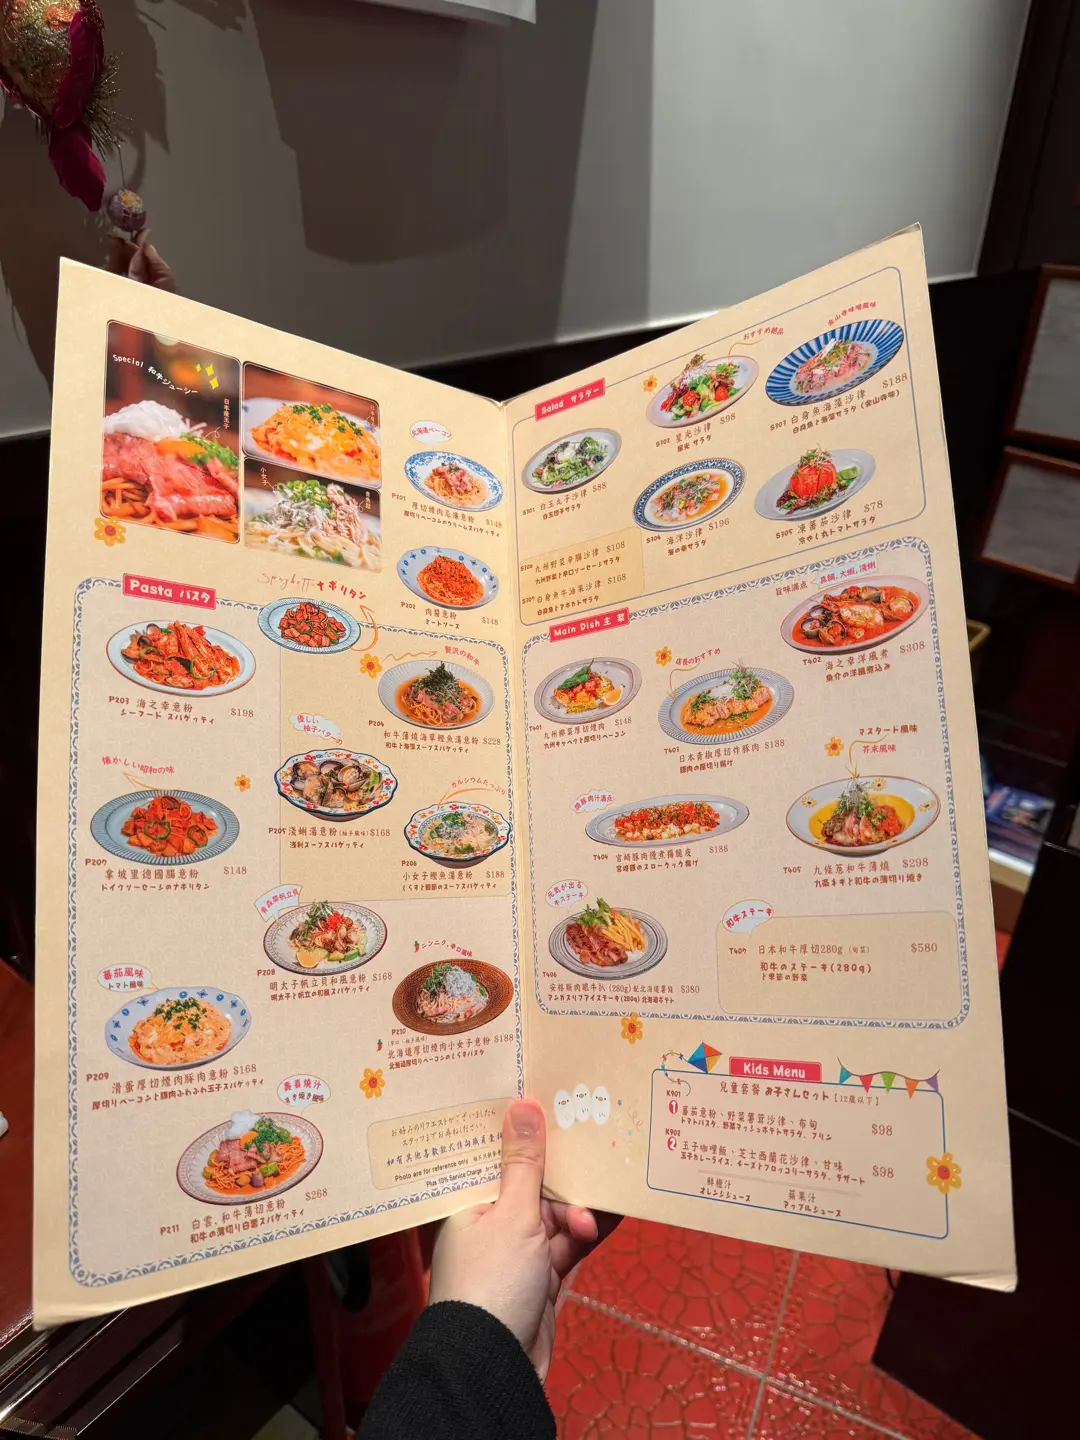 Special 和牛ジューシー
日本産玉子
小女子
北海道ベーコン
P201
厚切煙肉忌廉意粉 $148
厚切りベーコンのクリームスパゲッティ
P202
肉醬意粉 $148
ミートソース
Pasta パスタ
ナポリタン
P203 海之幸意粉 $198
シーフード スパゲッティ
贅沢の和牛
P204
和牛薄燒海草鰹魚湯意粉 $228
和牛と海藻スープスパゲッティ
優しい
柚子バターの
P205 淺蜊湯意粉(柚子風味) $168
浅利スープスパゲッティ
カルシウムたっぷり
P206
小女子鰹魚湯意粉 $188
しらすと鰹節のスープスパゲッティ
懐かしい昭和の味
P207
拿坡里德國腸意粉 $148
トイツソーセージのナポリタン
青森県帆立貝
P208
明太子帆立貝和風意粉 $168
明太子と帆立の和風スパゲッティ
蕃茄風味
トマト風味
P209
滑蛋厚切煙肉豚肉意粉 $168
厚切りベーコンと豚肉ふわふわ玉子スパゲッティ
ニンニク,辛口風味
P210
(辛口・柚子風味)
北海道厚切煙肉小女子意粉 $188
北海道厚切りベーコンのしらすパスタ
壽喜燒汁
すき焼き風味
P211 白雲,和牛薄切意粉 $268
和牛の薄切り白雲スパゲッティ
お好みのリクエストがございましたら
スタッフまでお尋ねください。
如有其他喜歡款式侍詢職員查詢
Photo are for reference only
Plus 10% Service Charge
Salad サラダー
おすすめ絶品
金山寺味噌風味
S301 白玉丸子沙律 $88
白玉団子サラダ
S302 星光沙律 $98
星光 サラダ
S303 白身魚海藻沙律 $188
白身魚と海藻サラダ(金山寺味)
S304 海洋沙律 $196
海の幸サラダ
S305 凍蕃茄沙律 $78
冷やし丸トマトサラダ
S306 九州野菜辛腸沙律 $108
九州野菜と辛口ソーセージサラダ
S307 白身魚牛油果沙律 $168
白身魚とアボカトサラダ
Main Dish 主菜
T401
九州椰菜厚切煙肉 $148
九州キャベツと厚切りベーコン
旨味満点
真鯛,大蝦,淺蜊
T402 海之幸洋風煮 $308
魚介の洋風煮込み
店長のおすすめ
T403
日本青椒厚切炸豚肉 $188
豚肉の厚切り揚げ
燒豚肉汁滿点
T404
宮崎豚肉慢煮揚脆皮 $188
宮崎豚のスロークック揚げ
マスタード風味
芥末風味
T405 九條蔥和牛薄燒 $298
九条ネギと和牛の薄切り焼き
元気が出る
牛ステーキ
T406
安格斯肉眼牛扒 (280g)配北海道薯條 $380
アンガスリブアイステーキ(280g)北海道ポテト
和牛ステーキ
T407 日本和牛厚切280g (旬菜) $580
和牛のステーキ(280g)
と季節の野菜
Kids Menu
兒童套餐 お子さんセット【12歲以下】
K901
1 蕃茄意粉、野菜薯茸沙律、布甸 $98
トマトパスタ、野菜マッシュポテトサラダ、プリン
K902
2 玉子咖喱飯、芝士西蘭花沙律、甘味 $98
玉子カレーライス、チーズトブロッコリーサラダ、デザート
鮮橙汁 蘋果汁
オレンジジュース アップルジュース